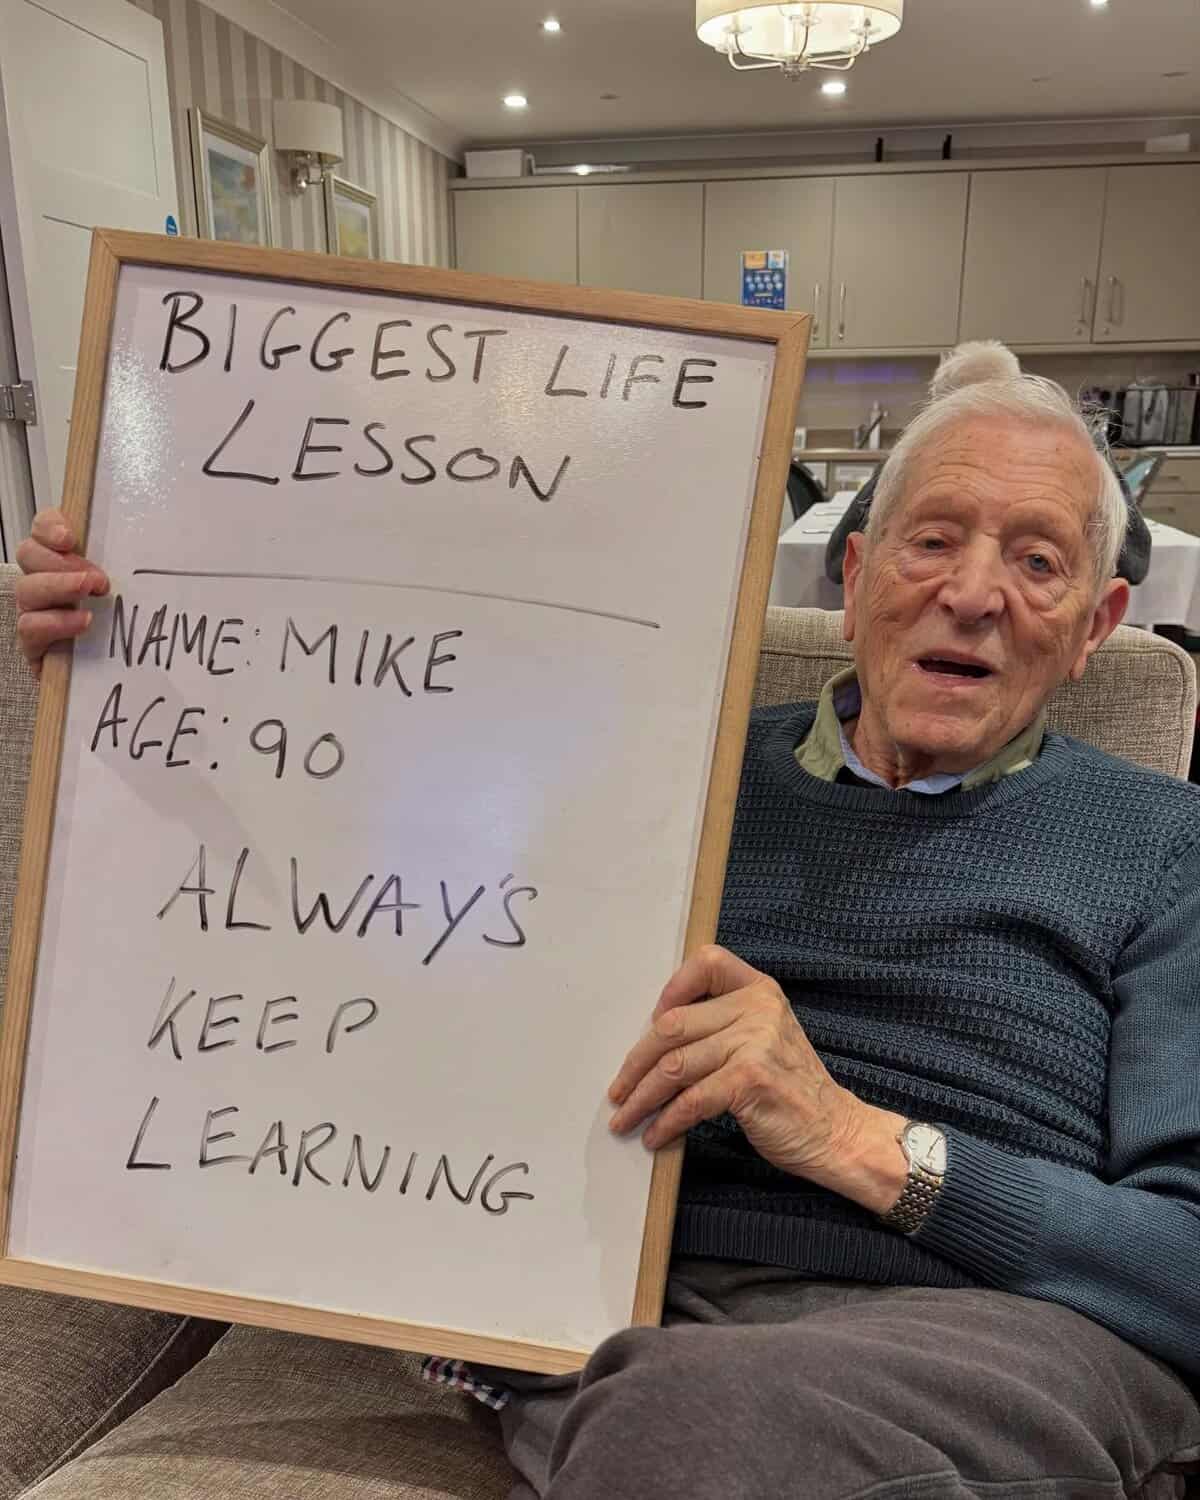 BIGGEST LIFE
LESSON
NAME: MIKE
AGE: 90
ALWAY'S
KEEP
LEARNING